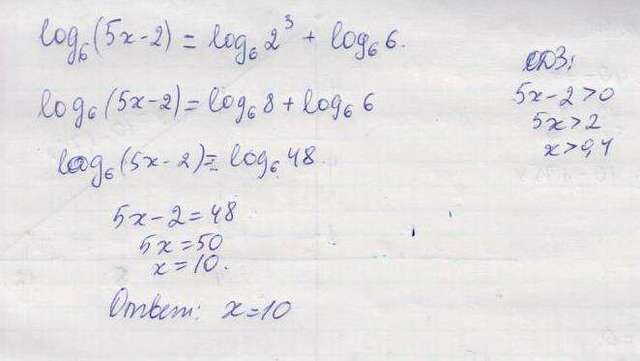 log₆(5x-2) = log₆2³ + log₆6.
log₆(5x-2) = log₆8 + log₆6
log₆(5x-2) = log₆48.
5x-2=48
5x=50
x=10.
Ответ: x=10
ОДЗ:
5x-2>0
5x>2
x>0,4